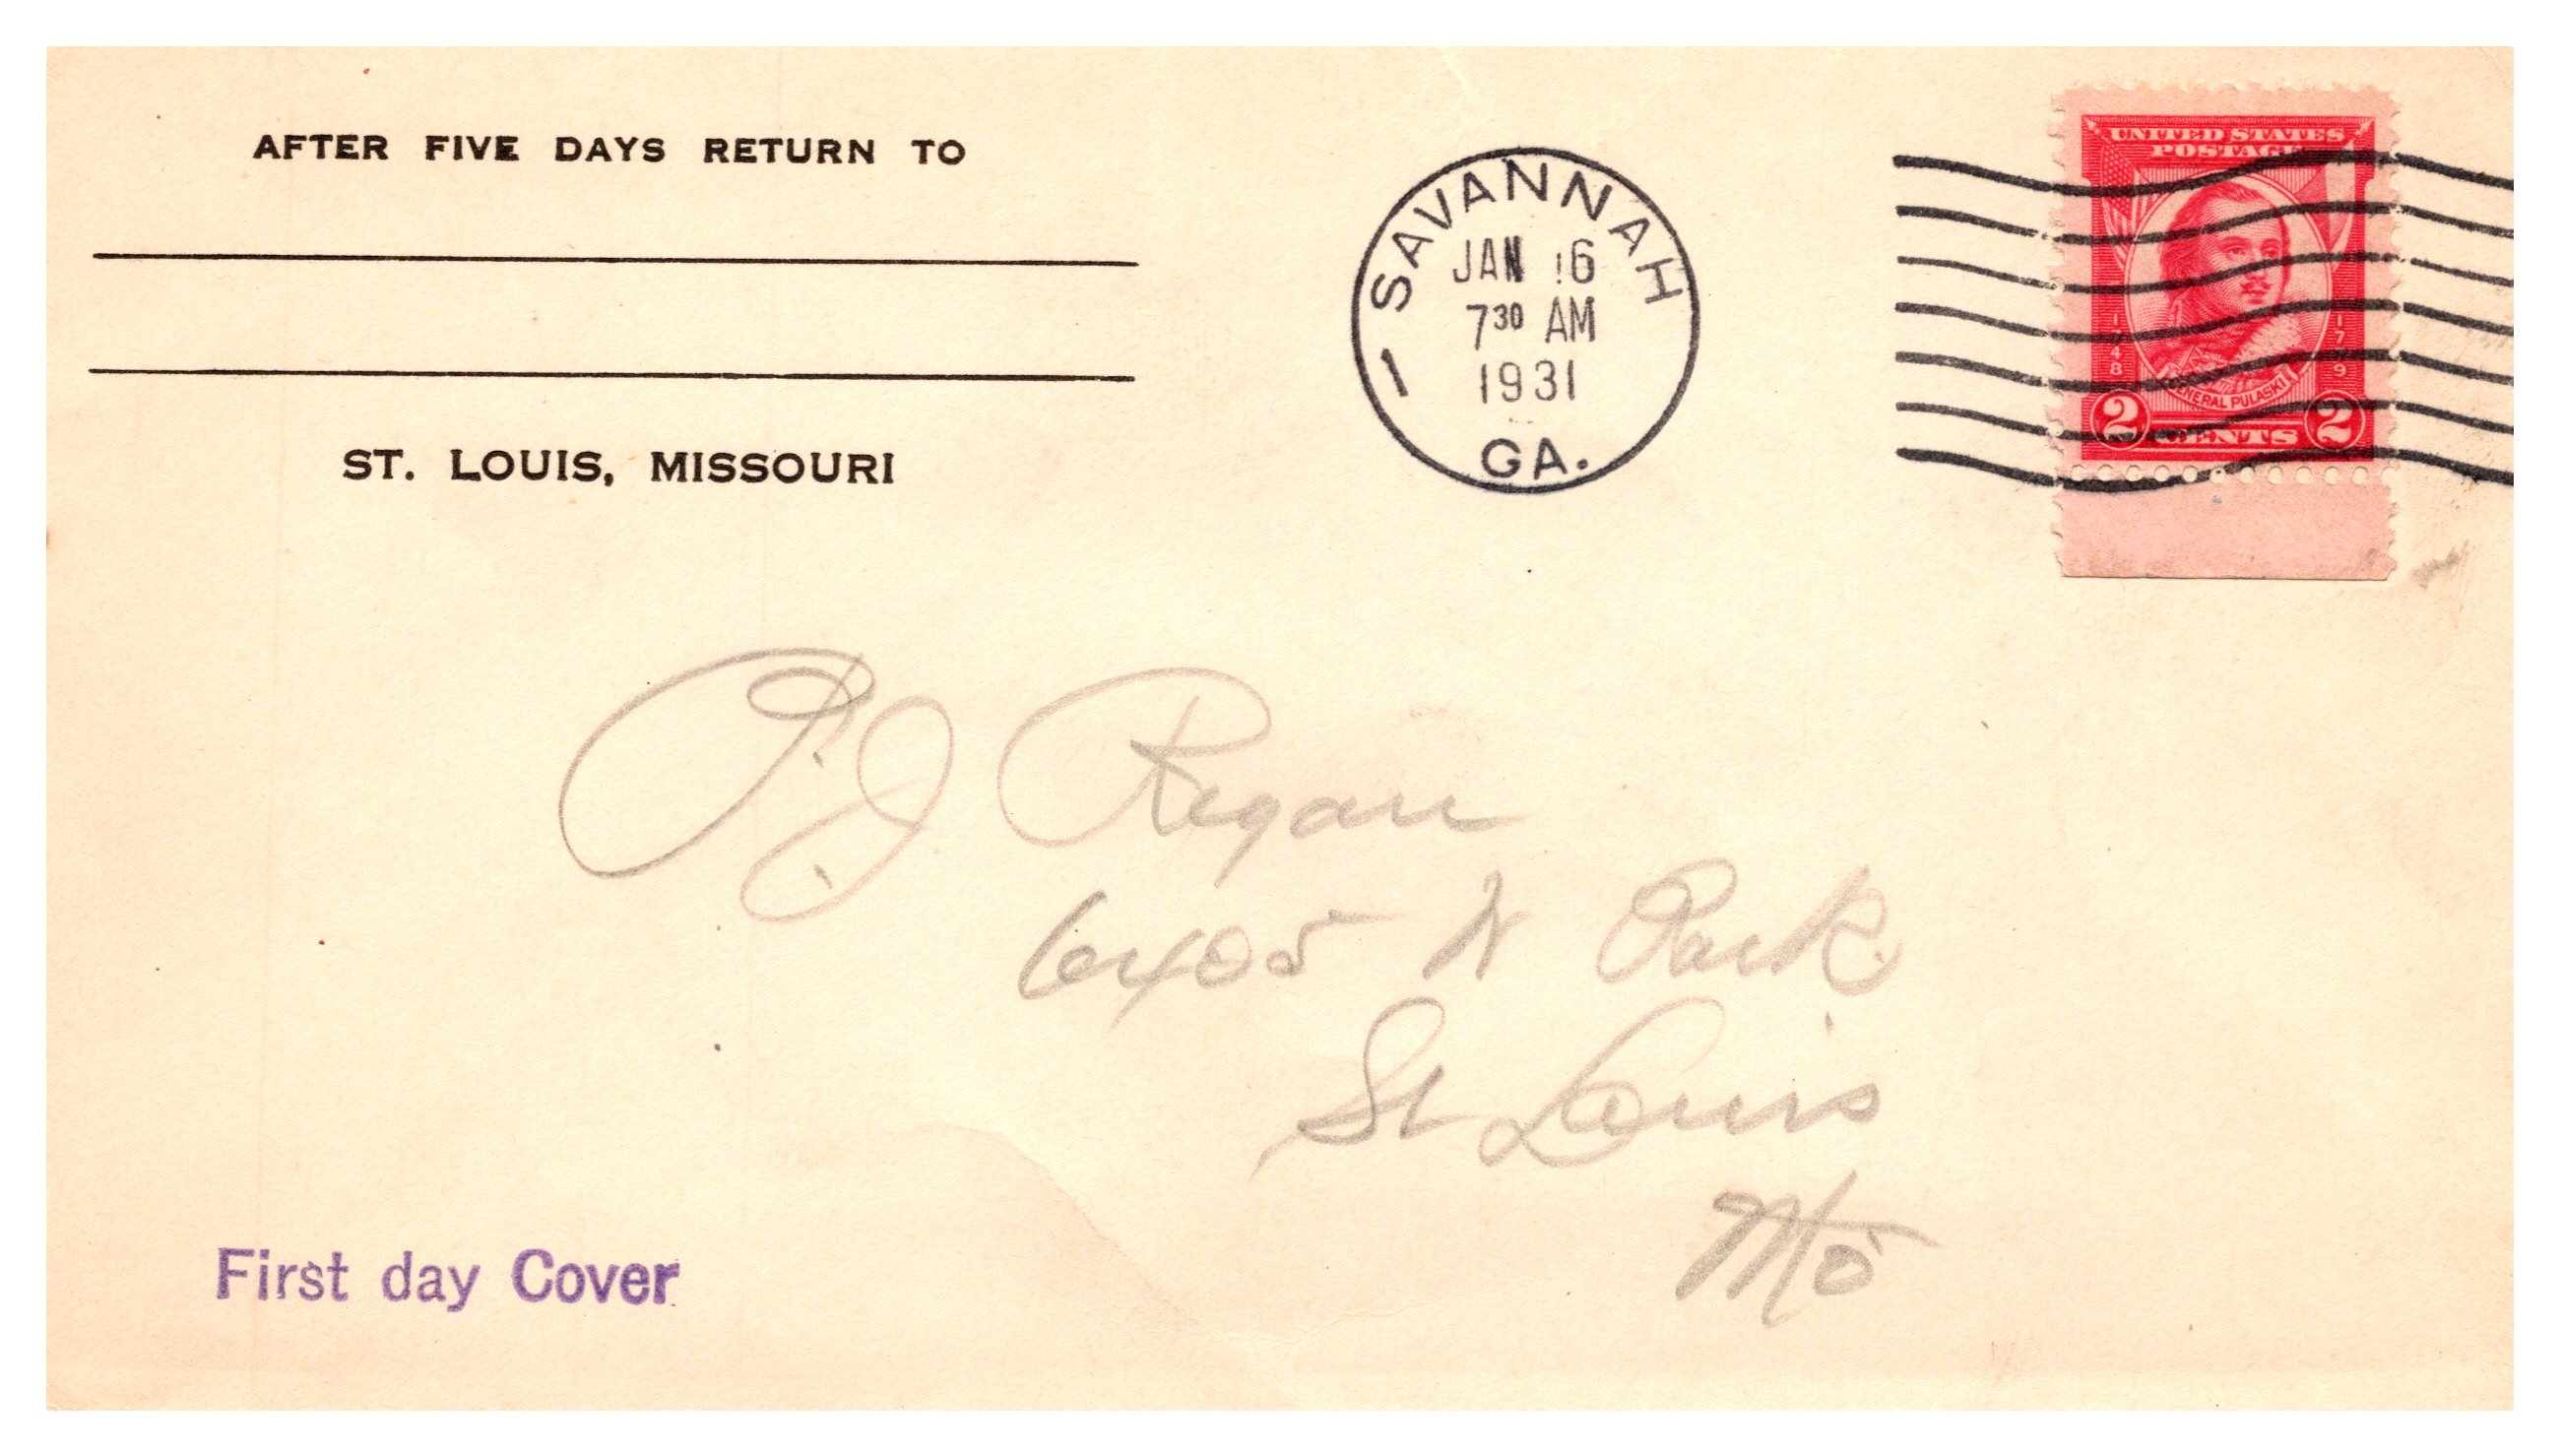 AFTER FIVE DAYS RETURN TO
ST. LOUIS, MISSOURI
SAVANNAH
JAN 16
7 30 AM
1931
1
GA.
UNITED STATES
POSTAGE
1748
1779
GENERAL PULASKI
2 CENTS 2
P J Regan
6405 N Park
St Louis
Mo
First day Cover